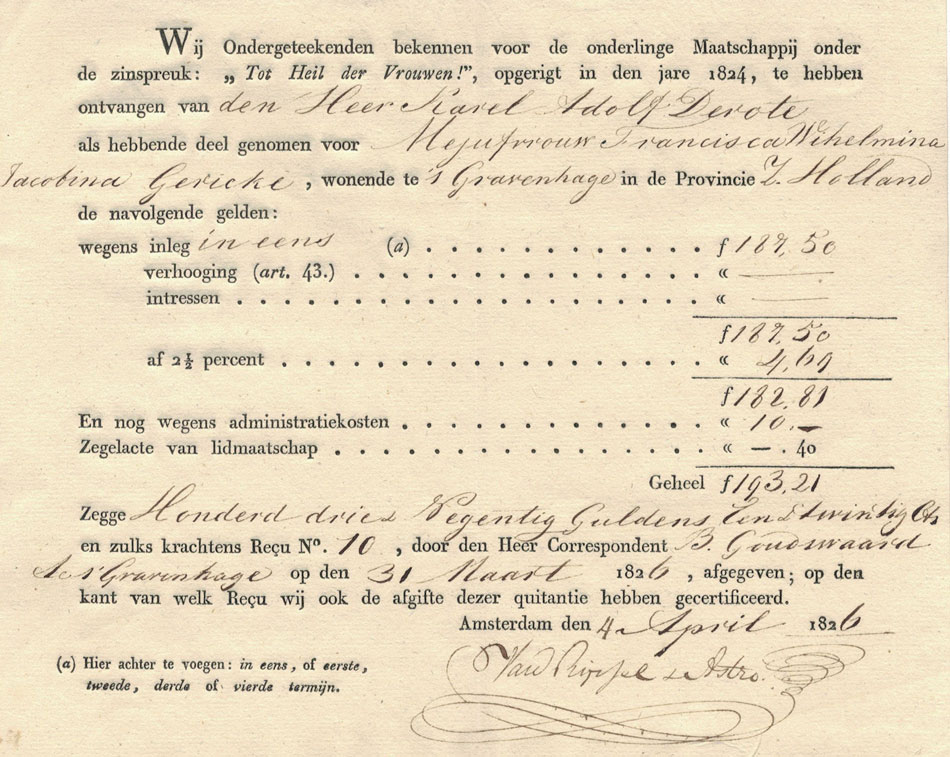 Wij Ondergeteekenden bekennen voor de onderlinge Maatschappij onder
de zinspreuk: „ Tot Heil der Vrouwen!”, opgerigt in den jare 1824, te hebben
ontvangen van den Heer Karel Adolf Derote
als hebbende deel genomen voor Mejufvrouw Francisca Wihelmina
Jacobina Gericke , wonende te 's Gravenhage in de Provincie Z. Holland
de navolgende gelden:
wegens inleg in eens (a) . . . . . . . . . . . . f 187,50
verhooging (art. 43.) . . . . . . . . . . . . . . «  ———
intressen . . . . . . . . . . . . . . . . . . . . «  ———
f 187,50
af 2½ percent . . . . . . . . . . . . . . . . . . « 4,69
f 182,81
En nog wegens administratiekosten . . . . . . . . . . . . « 10.—
Zegelacte van lidmaatschap . . . . . . . . . . . . . . . « — . 40
Geheel f 193,21
Zegge Honderd drie & Negentig Guldens, Een & twintig Cts
en zulks krachtens Reçu Nº. 10 , door den Heer Correspondent B. Goudswaard
te 's Gravenhage op den 31 Maart 1826 , afgegeven; op den
kant van welk Reçu wij ook de afgifte dezer quitantie hebben gecertificeerd.
Amsterdam den 4 April 1826
(a) Hier achter te voegen: in eens, of eerste,
tweede, derde of vierde termijn.